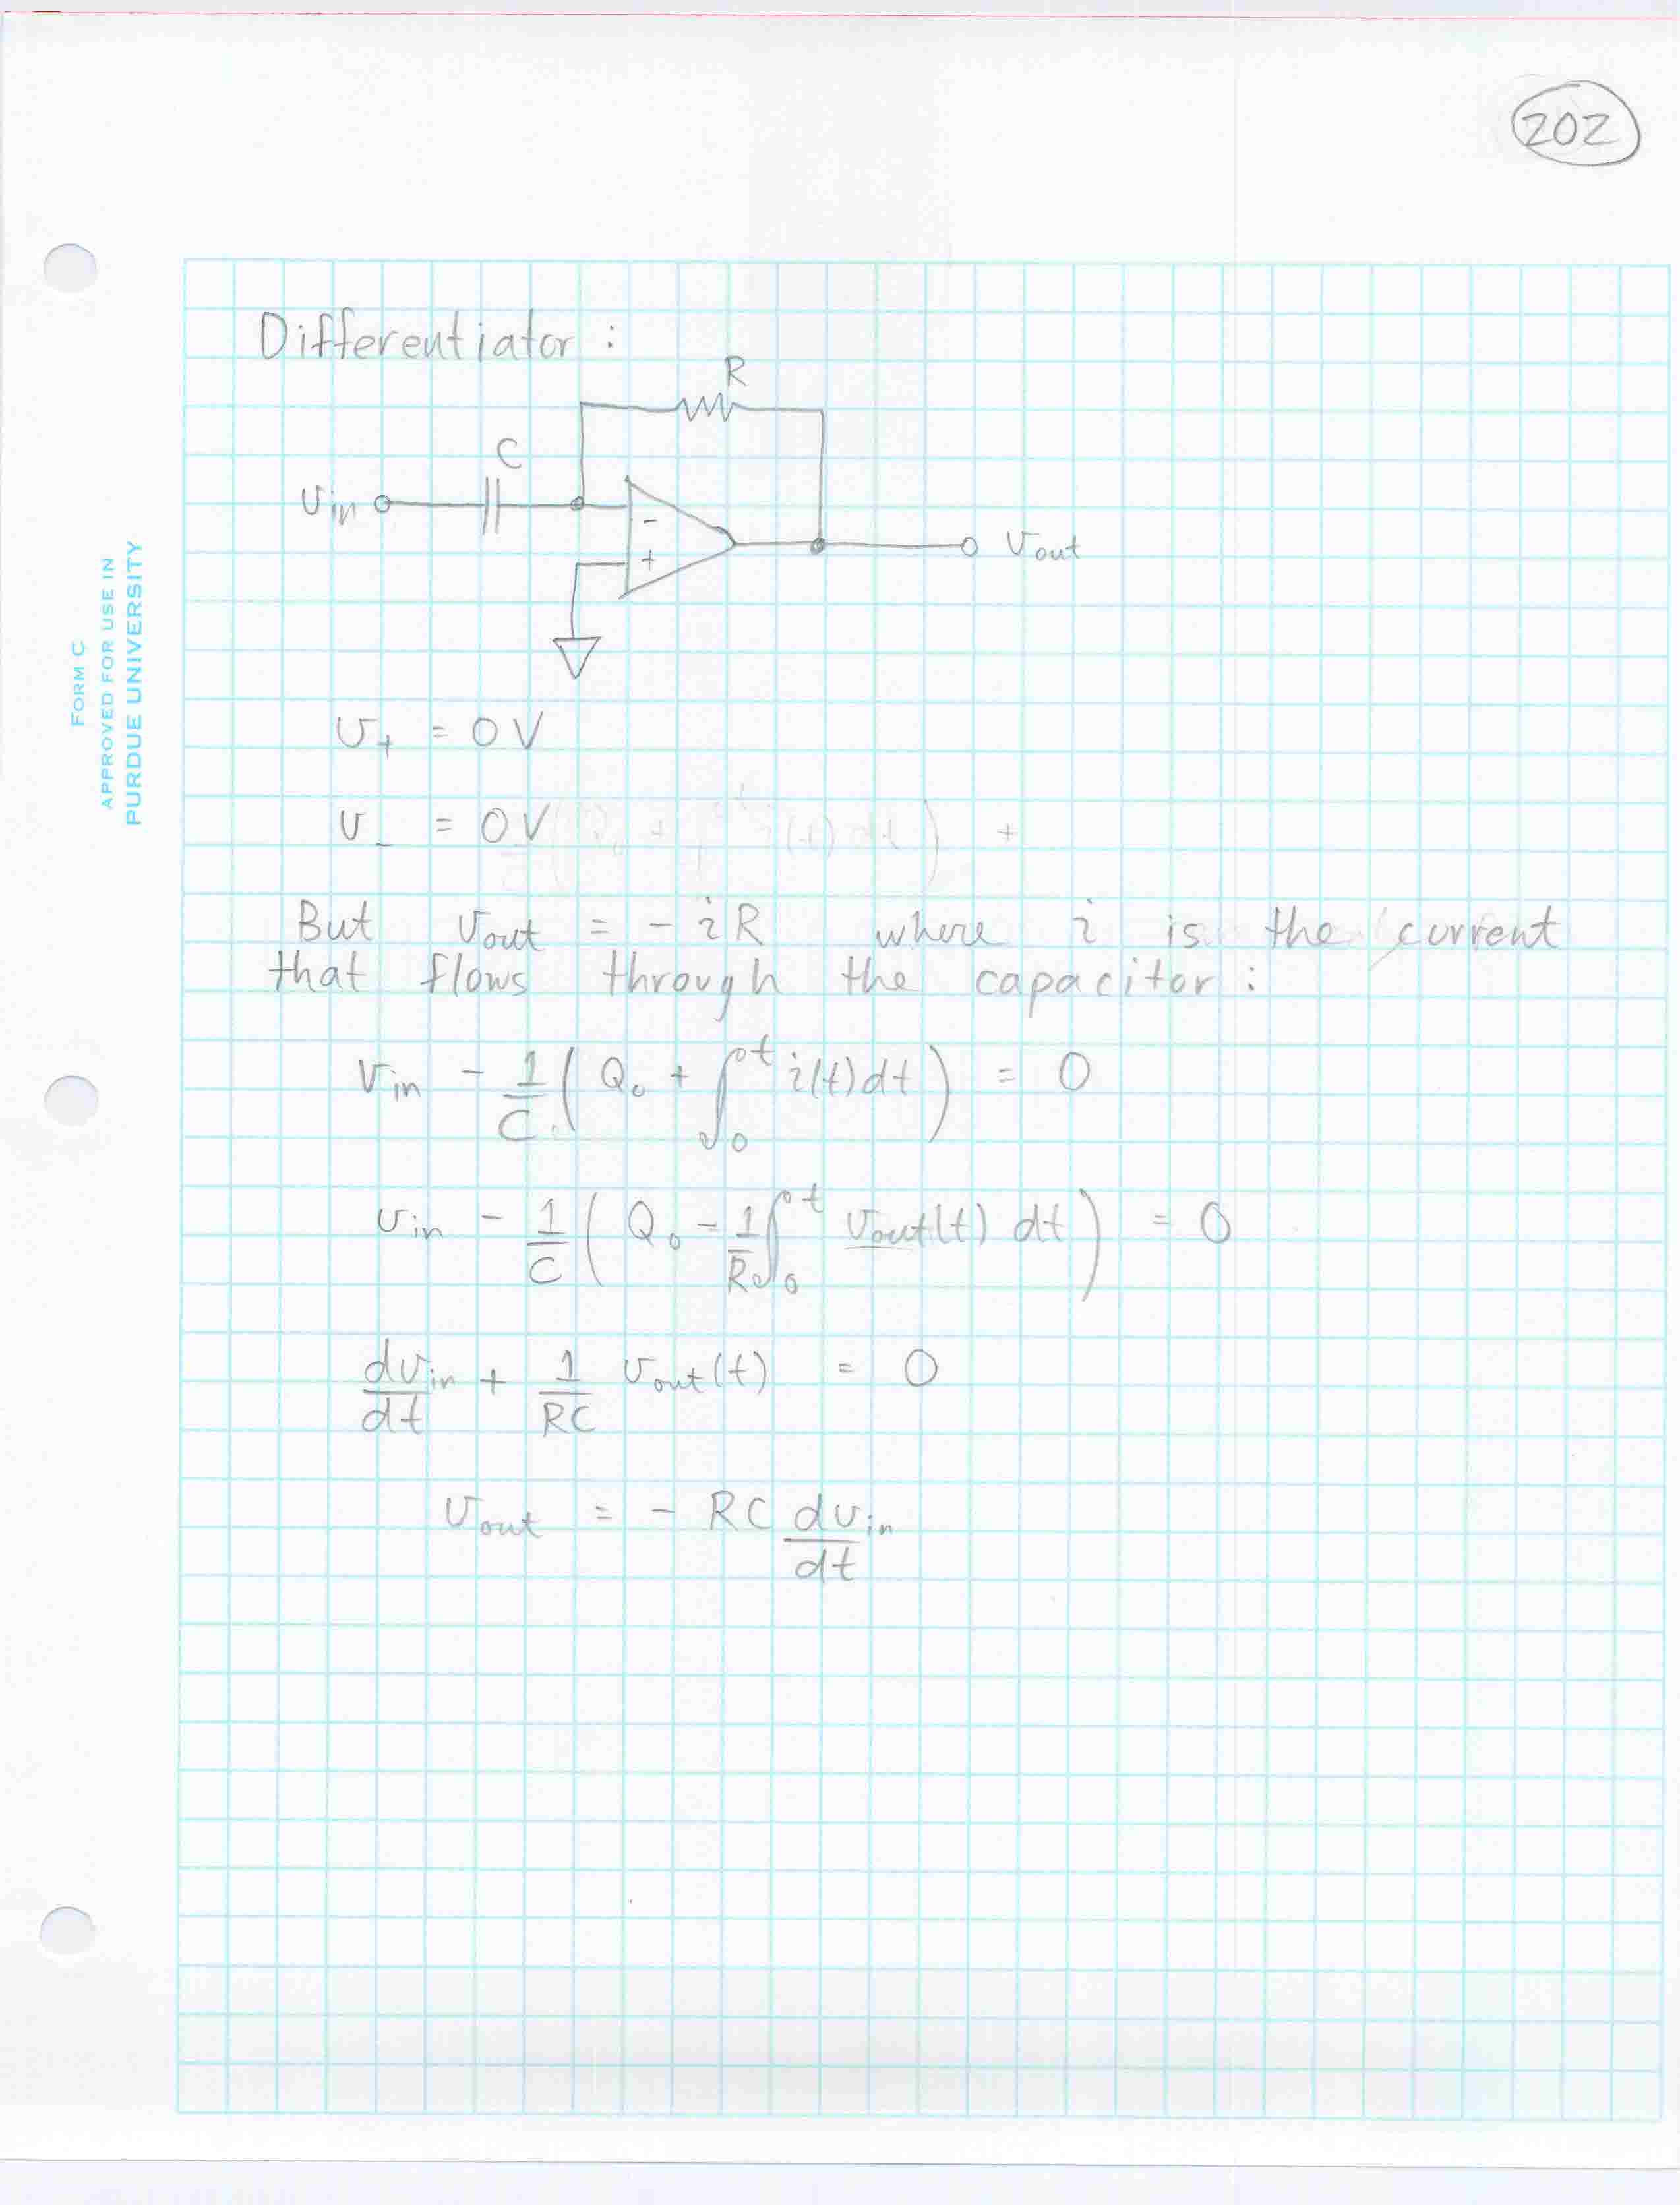 202
FORM C
APPROVED FOR USE IN
PURDUE UNIVERSITY
Differentiator:
R
C
v_in
-
+
v_out
v_+ = 0V
v_- = 0V
But v_out = - iR where i is the current
that flows through the capacitor:
v_in - 1/C (Q_0 + ∫_0^t i(t)dt) = 0
v_in - 1/C (Q_0 - 1/R ∫_0^t v_out(t) dt) = 0
dv_in/dt + 1/RC v_out(t) = 0
v_out = - RC dv_in/dt